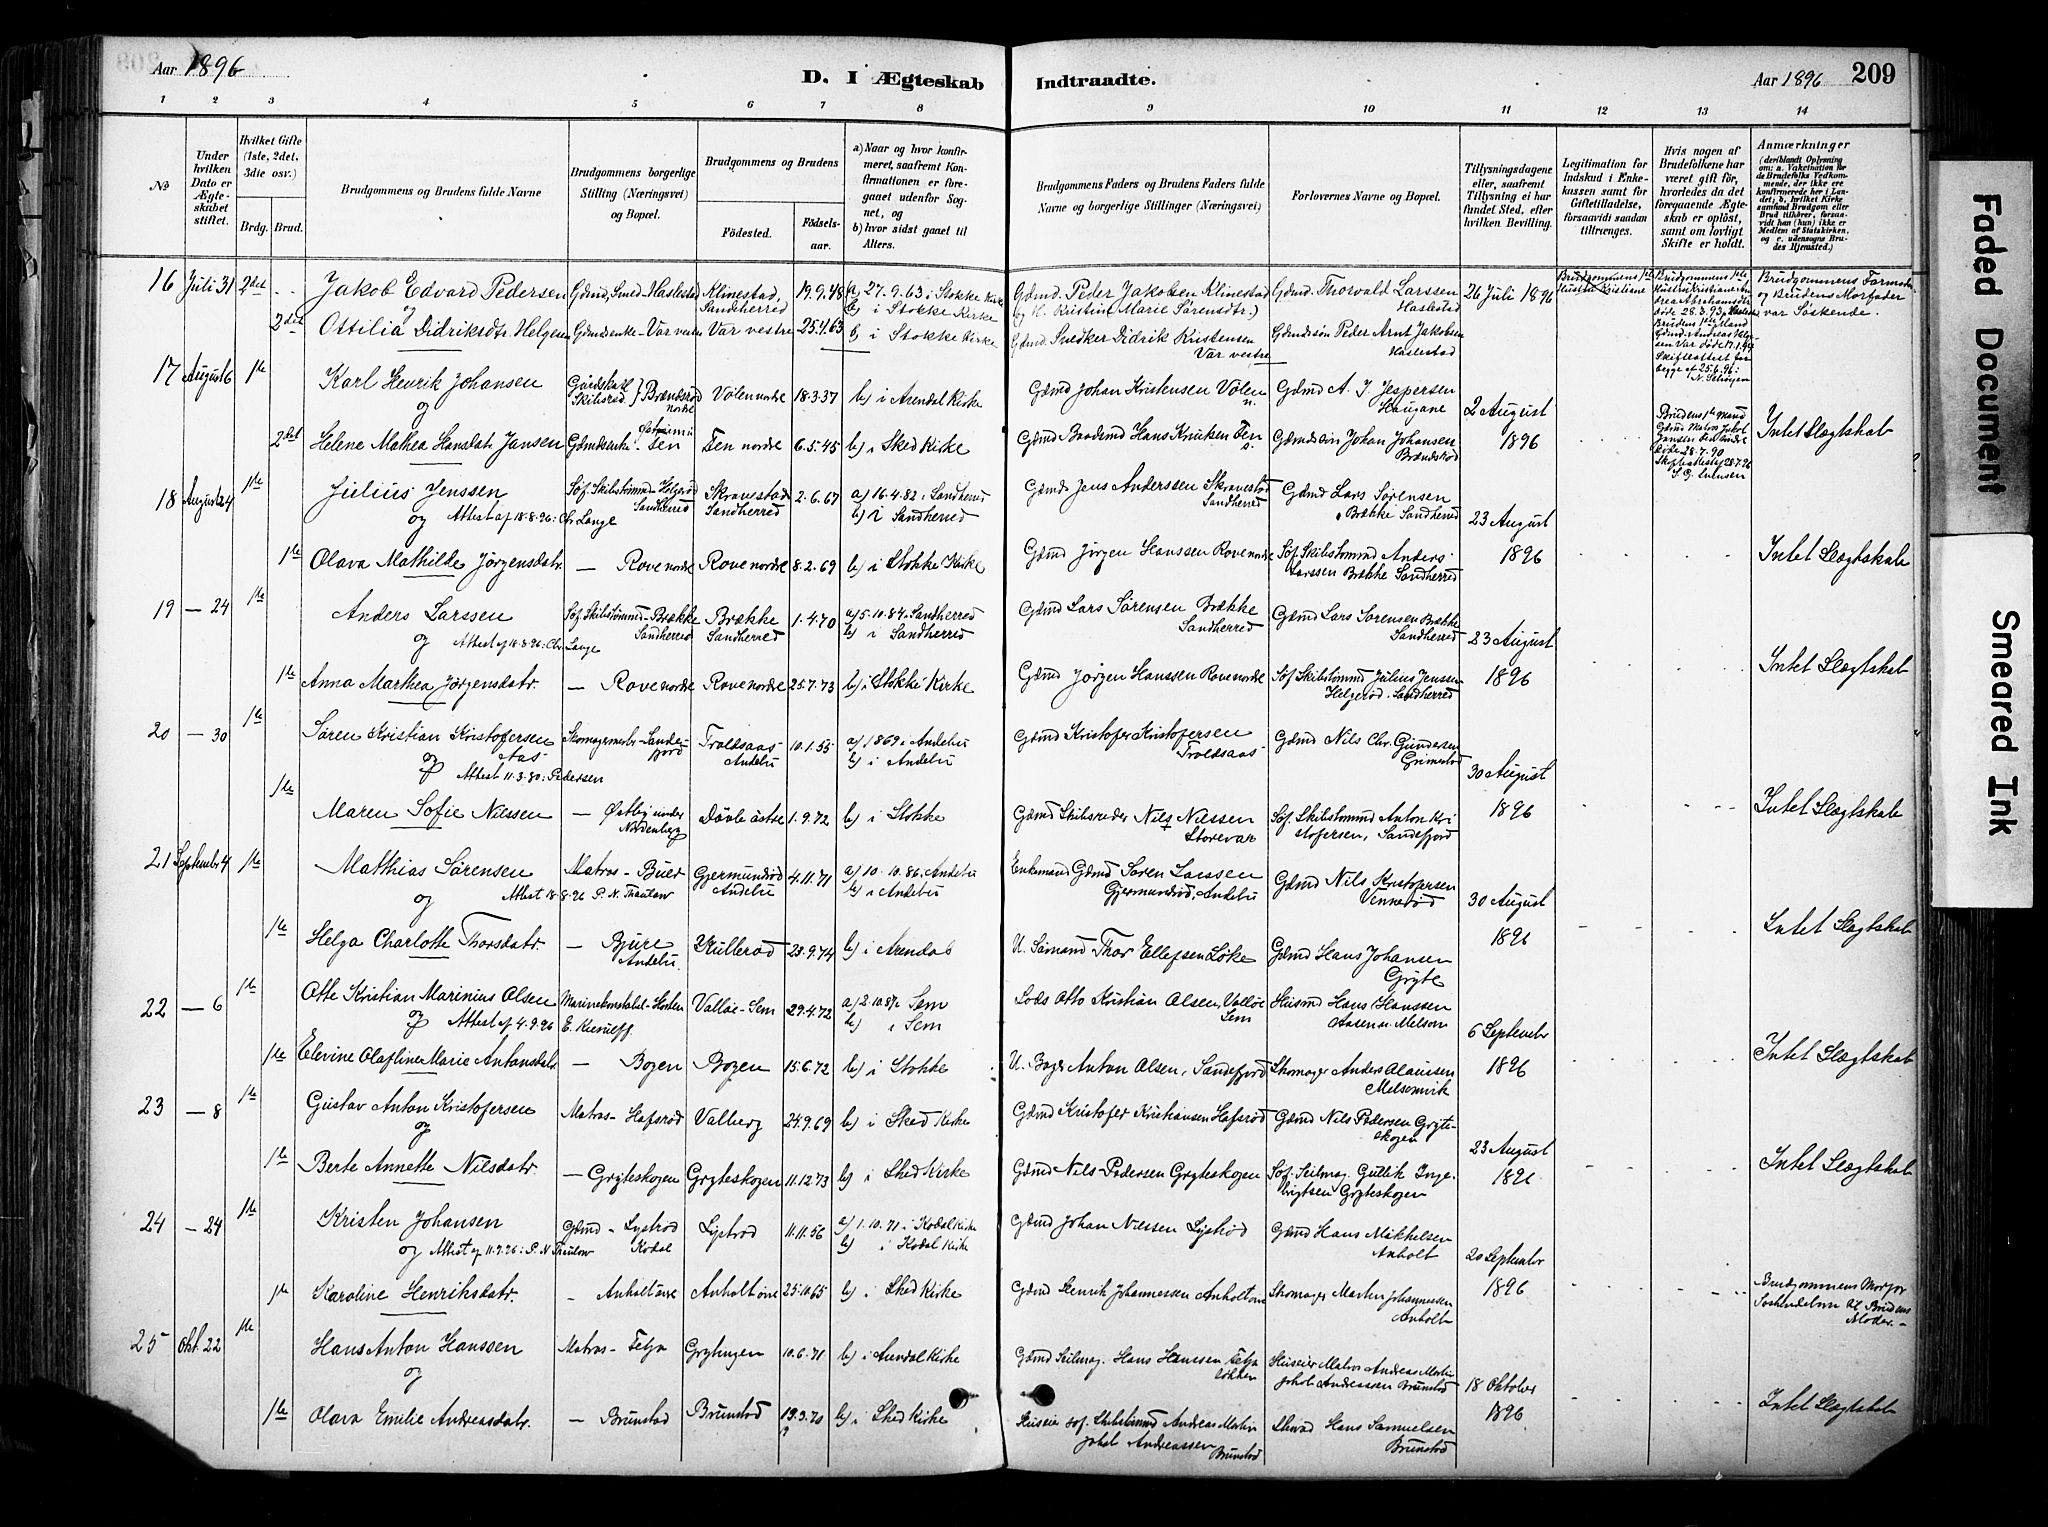 Aar 1896
D. I Ægteskab Indtraadte.
Aar 1896 209
1 2 3 4 5 6 7 8 9 10 11 12 13 14
№
Under hvilken Dato er Ægteskabet stiftet.
Hvilket Gifte (1ste, 2det, 3die osv.)
Brdg. Brud.
Brudgommens og Brudens fulde Navne
Brudgommens borgerlige Stilling (Næringsvei) og Bopæl.
Brudgommens og Brudens
Fødested.
Fødselsaar.
a) Naar og hvor konfirmeret, saafremt Konfirmationen er foregaaet udenfor Sognet, og
b) hvor sidst gaaet til Alters.
Brudgommens Faders og Brudens Faders fulde Navne og borgerlige Stillinger (Næringsvei)
Forlovernes Navne og Bopæl.
Tillysningsdagene eller, saafremt Tillysning ei har fundet Sted, efter hvilken Bevilling.
Legitimation for Indskud i Enkekassen samt for Giftetilladelse, forsaavidt saadan tiltrænges.
Hvis nogen af Brudefolkene har været gift før, hvorledes da det foregaaende Ægteskab er opløst, samt om lovligt Skifte er holdt.
Anmærkninger
(deriblandt Oplysning om: a. Vakcination for de Brudefolks Vedkommende, der ikke ere konfirmerede her i Landet; b. hvilket Kirkesamfund Brudgom eller Brud tilhører, forsaavidt han (hun) ikke er Medlem af Statskirken, og c. udensogns Brudes Hjemsted.)
16 Juli 31 2det Jakob Edvard Pedersen Gdmd, Smed Haslestad Klinestad, Sandherred 19.9.48 a) 27.9.63 i Stokke Kirke b) i Stokke Kirke Gdmd. Peder Jakobsen Klinestad og H. Kristine Marie Sørensdtr.) Gdmd. Thorvald Larssen Haslestad 26 Juli 1896 Brudgommens Farmoder og Brudens Morfader var Søskende.
og
2det Ottilia Didriksdtr Helgesen Gdmdsenke - Var vestre Var vestre 25.4.63 b) i Stokke Kirke Gdmd. Snedker Didrik Kristensen Var vestre Gdmdssøn Peder Arnt Jakobsen Haslestad
17 August 6 1ste Karl Henrik Johansen Gårdskarl Skibsrød Brændsrød nordre Volen nordre 18.3.37 b) i Arendal Kirke Gdmd Johan Kristensen Volen n. Gdmd A. J. Jespersen Haugane 2 August 1896
og
2det Helene Mathea Hansdatr Jansen Gdmdsenke - Fen Fen nordre 6.5.45 b) i Sked Kirke Gdmd Hans Knutsen Fen Gdmdssøn Johan Johansen Brændsrød Intet Slægtskab
18 August 24 1ste Julius Jenssen Søf. Skibstømmd - Helgerød Sandherred Skravestad Sandherred 2.6.67 a) 16.4.82 i Sandherred b) i Sandherred Gdmd Jens Anderssen Skravestad Sandherred Gdmd Lars Sørensen Brække Sandherred 23 August 1896
og Attest af 18.8.96: Chr. Lange
1ste Olava Mathilde Jørgensdatr. — Rove nordre Rove nordre 8.2.69 b) i Stokke Kirke Gdmd Jørgen Hanssen Rove nordre Søf. Skibstømmd Anders Larssen Brække Sandherred Intet Slægtskab
19 — 24 1ste Anders Larssen Søf. Skibstømmd - Brække Sandherred Brække Sandherred 1.4.70 a) 5.10.84 i Sandherred b) i Sandherred Gdmd Lars Sørensen Brække Sandherred Gdmd Lars Sørensen Brække Sandherred 23 August 1896
og Attest af 18.8.96: Chr. Lange
1ste Anna Marthea Jørgensdatr. — Rove nordre Rove nordre 25.7.73 b) i Stokke Kirke Gdmd Jørgen Hanssen Rove nordre Søf. Skibstømmd Julius Jenssen Helgerød Sandherred Intet Slægtskab
20 — 30 1ste Søren Kristian Kristofersen Aas Skomagermester - Sandefjord Troldsaas Andebu 10.1.55 a) 1869 i Andebu b) i Andebu Gdmd Kristofer Kristofersen Troldsaas Gdmd Nils Chr. Gundersen Grimestad 30 August 1896
og Attest 11.3.80: Pedersen
1ste Maren Sofie Nilssen — Østby under Nordenberg Døvle østre 1.9.72 b) i Stokke Gdmd Skibsreder Nils Nilssen Storevar Søf. Skibstømmd Anton Kristofersen, Sandefjord Intet Slægtskab
21 September 4 1ste Matthias Sørensen Matros - Buer Gjermundrød Andebu 4.11.71 a) 10.10.86 Andebu b) i Andebu Enkemand Gdmd Søren Larssen Gjermundrød, Andebu Gdmd Nils Kristofersen Vennerød 30 August 1896
og Attest 18.8.96 P. N. Thaulow
1ste Helga Charlotte Thorsdatr. — Bjure Andebu. Kullerød 23.9.74 b) i Arendal U. Sømand Thor Ellefsen Løke Gdmd Hans Johansen Gryte Intet Slægtskab
22 — 6 1ste Otto Kristian Marinius Olsen Marinekonstabel - Horten Valløe - Sem 29.4.72 a) 2.10.87 i Sem b) i Sem Lods Otto Kristian Olsen, Valløe Sem Husmd Hans Hanssen Aasen u. Melsom 6 September 1896
og Attest af 4.9.96 E. Kierulff
1ste Elevine Olafline Marie Antonsdatr — Bogen Bogen 15.6.72 b) i Stokke U. Bager Anton Olsen, Sandefjord Skomager Anders Olaussen Melsomvik Intet Slægtskab
23 — 8 1ste Gustav Anton Kristofersen Matros - Hafsrød Valberg 24.9.69 b) i Sked Kirke Gdmd Kristofer Kristiansen Hafsrød Gdmd Nils Pedersen Gryteskogen 23 August 1896
og
1ste Berte Annette Nilsdatr. — Gryteskogen Gryteskogen 11.12.73 b) i Sked Kirke Gdmd Nils Pedersen Gryteskogen Søf. Seilmag. Gullik Ingebrigtsen Gryteskogen Intet Slægtskab
24 — 24 1ste Kristen Johansen Gdmd - Lystrød Kodal Lystrød 11.11.56 a) 1.10.71 i Kodal Kirke b) i Kodal Kirke Gdmd Johan Nilssen Lystrød Gdmd Hans Mikkelsen Anholt 20 September 1896
og Attest af 11.9.96: P. N. Thaulow
1ste Karoline Henriksdatr. - Anholt øvre Anholt øvre 25.10.65 b) i Sked Kirke Gdmd Henrik Johannessen Anholt øvre Skomager Martin Johannessen Anholt Brudgommens Morfar Søskendebarn til Brudens Moder.
25 Okt. 22 1ste Hans Anton Hanssen Matros - Feta Grytnyen 10.6.71 b) i Arendal Kirke Gdmd Seilmag. Hans Hanssen Feta løkken Huseier Matros Andreas Martin Johah Andreassen Brunstad 18 Oktober 1896
og
1ste Olava Emilie Andreasdatr. — Brunstad Brunstad 19.3.70 b) i Sked Kirke Huseier søf. Skibstømmd Andreas Martin Johah Andreassen Brunstad Hans Samuelsen Brunstad Intet Slægtskab
Faded Document
Smeared Ink